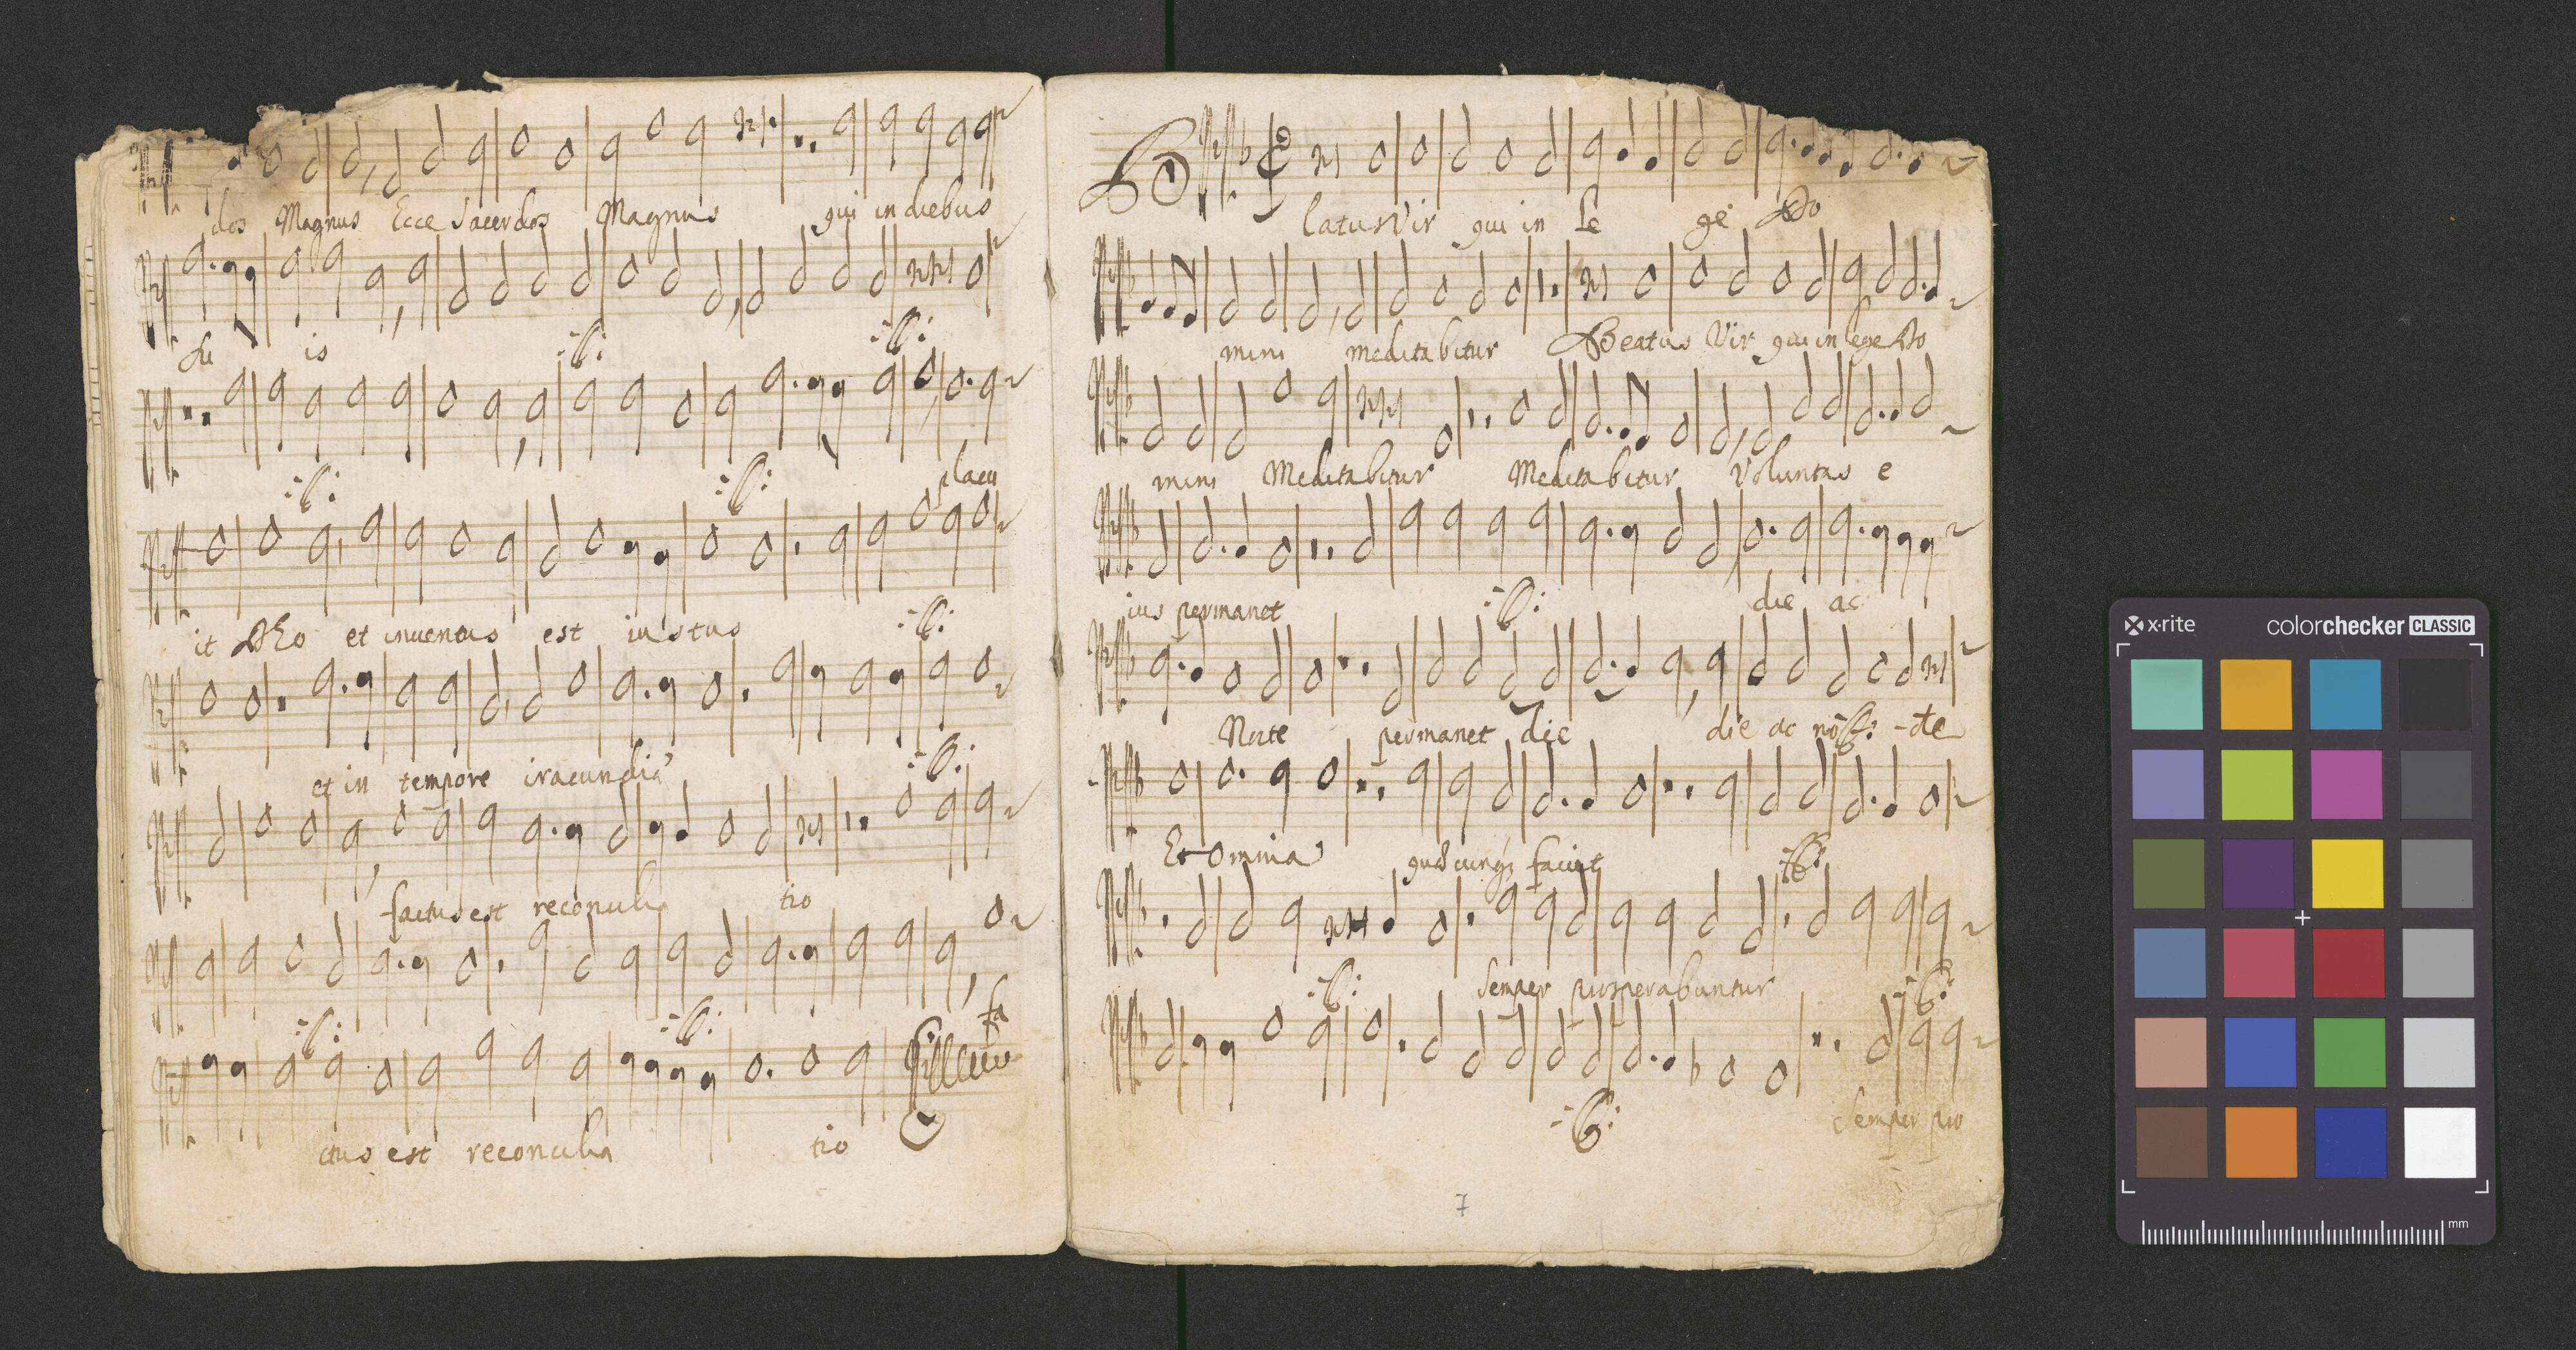 dos Magnus Ecce Sacerdos Magnus qui in diebus
su is
placu
it DEo et inuentus est iustus
et in tempore iracundiæ
factus est reconcilia tio
fa
ctus est reconcilia tio
latus Vir qui in Le ge Do
mini meditabitur Beatus Vir qui in lege Do
mini Meditabitur Meditabitur Voluntas e
ius permanet die ac
Nocte permanet die die ac no -cte
Et omnia quæcunq; faciet
Semper prosperabuntur
Semper pro
7
x-rite colorchecker CLASSIC
mm